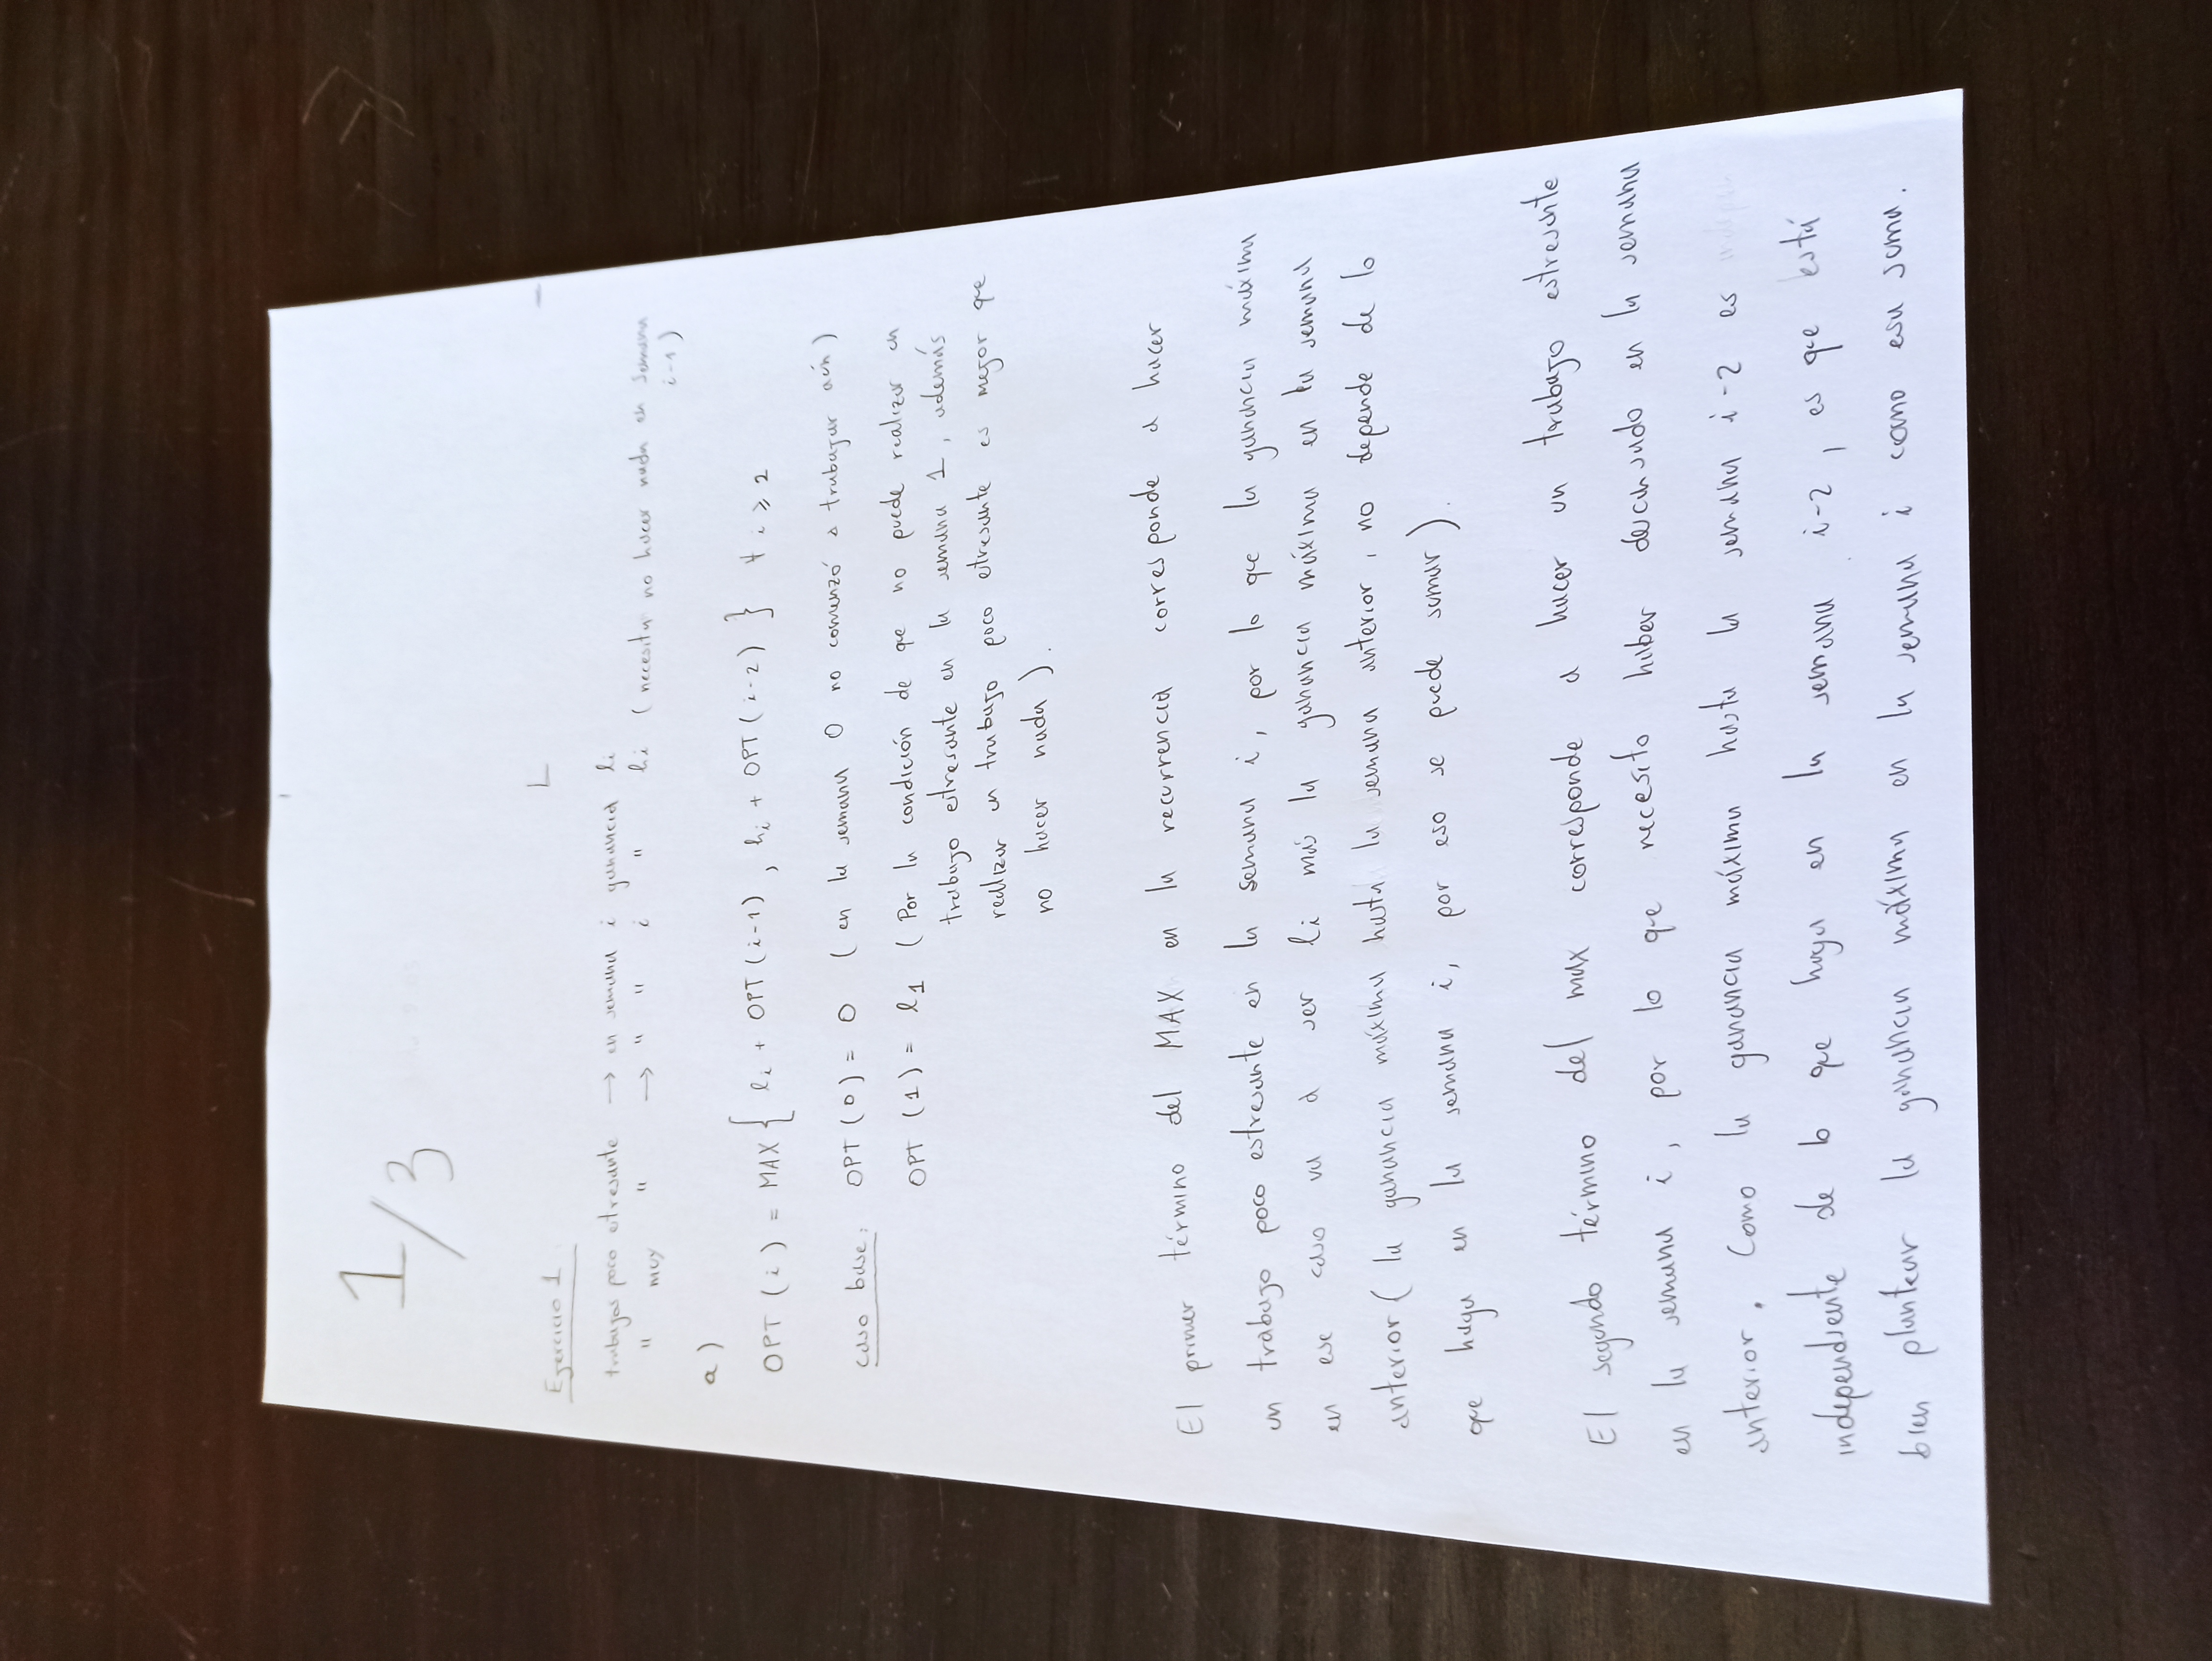 1/3
Ejercicio 1
trabajos poco etresante → en semana i ganancia li
" muy " → " " i " hi (necesita no hacer nada en semana
i-1)
a)
OPT (i) = MAX { li + OPT (i-1) , hi + OPT (i-2) } ∀ i ⩾ 2
caso base: OPT (0) = 0 (en la semana 0 no comenzó a trabajar aún)
OPT (1) = l1 (Por la condición de que no puede realizar un
trabajo estresante en la semana 1, además
realizar un trabajo poco etresante es mejor que
no hacer nada).
El primer término del MAX en la recurrencia corresponde a hacer
un trabajo poco estresante en la semana i, por lo que la ganancia máxima
en ese caso va a ser li más la ganancia máxima en la semana
anterior (la ganancia máxima hasta la semana anterior, no depende de lo
que haga en la semana i, por eso se puede sumar).
El segundo término del max corresponde a hacer un trabajo estresante
en la semana i, por lo que necesito haber descansado en la semana
anterior. Como la ganancia máxima hasta la semana i-2 es
independiente de lo que haga en la semana i-2, es que está
bien plantear la ganancia máxima en la semana i como esa suma.